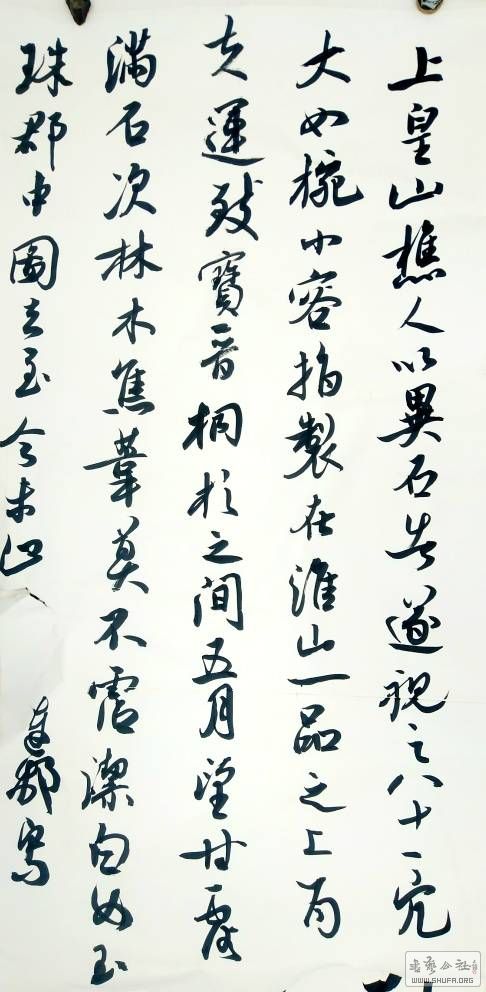 上皇山樵人以異石告遂視之八十一穴
大如椀小容指製在淮山一品之上百
夫運致寶晉桐杉之間五月望甘露
滿石次林木焦葦莫不霑潔白如玉
珠郡中圖去至今未止
書藝公社
WWW.SHUFA.ORG